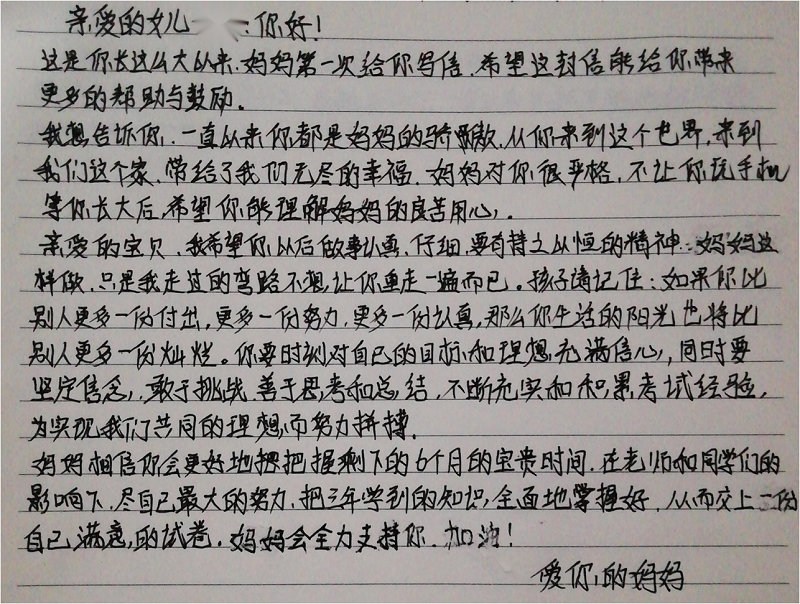 亲爱的女儿 :你好!
这是你长这么大以来,妈妈第一次给你写信,希望这封信能给你带来
更多的帮助与鼓励。
我想告诉你,一直以来你都是妈妈的骄傲,从你来到这个世界,来到
我们这个家,带给了我们无尽的幸福,妈妈对你很严格,不让你玩手机
等你长大后,希望你能理解妈妈的良苦用心,。
亲爱的宝贝,我希望你以后做事认真、仔细,要有持之以恒的精神:妈妈这
样做,只是我走过的弯路不想让你重走一遍而已。孩子请记住:如果你比
别人更多一份付出,更多一份努力,更多一份认真,那么你生活的阳光也将比
别人更多一份灿烂。你要时刻对自己的目标和理想充满信心,同时要
坚定信念,敢于挑战,善于思考和总结,不断充实和积累考试经验,
为实现我们共同的理想而努力拼搏。
妈妈相信你会更好地把握剩下的6个月的宝贵时间,在老师和同学们的
影响下,尽自己最大的努力,把三年学到的知识,全面地掌握好,从而交上一份
自己满意的试卷,妈妈会全力支持你,加油!
爱你的妈妈